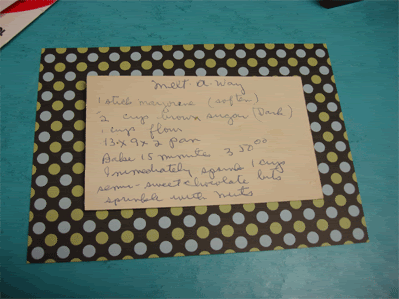 Melt-A-Way
1 stick margarine (soften)
1/2 cup brown sugar (Dark)
1 cup flour
13 x 9 x 2 pan
Bake 15 minute 350°°
Immediately spread 1 cup
semi-sweet chocolate bits
sprinkle with nuts